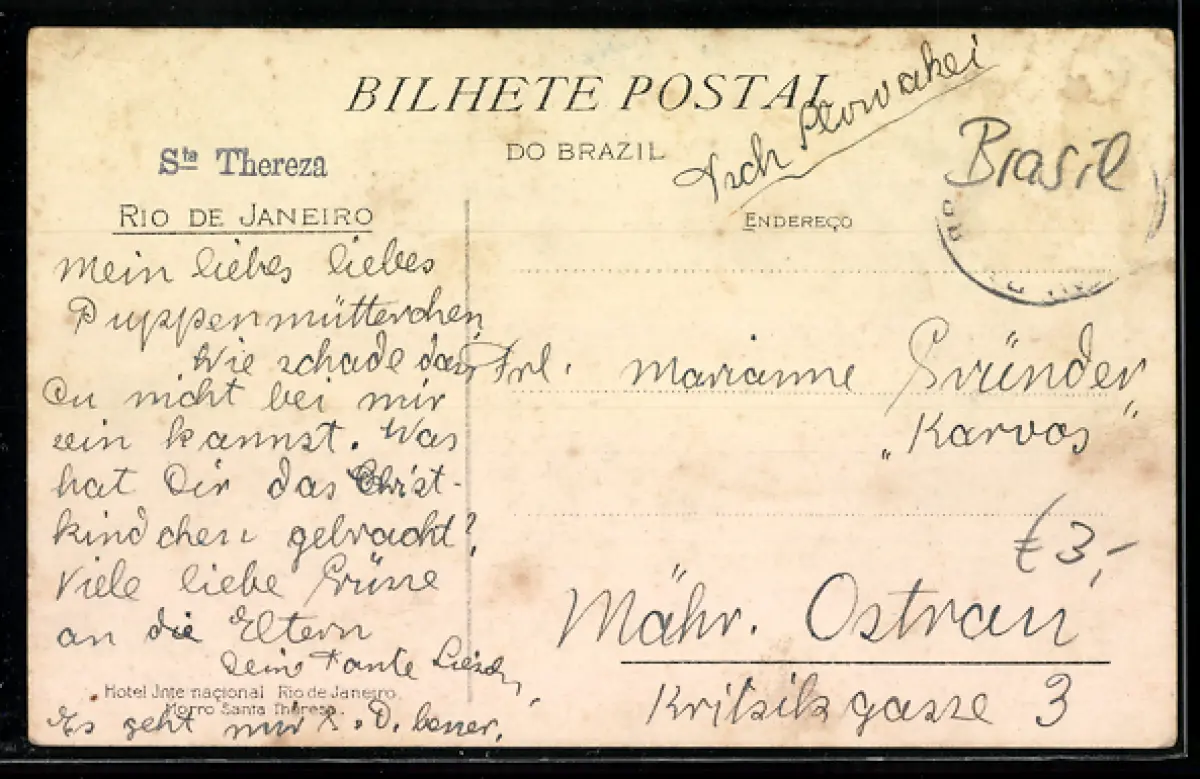 BILHETE POSTAL
DO BRAZIL
Brasil
Sta Thereza
RIO DE JANEIRO
ENDEREÇO
Mein liebes liebes
Puppenmütterchen
Wie schade dass
Du nicht bei mir
sein kannst. Was
hat Dir das Christ-
kindchen gebracht?
Viele liebe Grüsse
an die Eltern
Dein Tante
Hotel Internacional Rio de Janeiro
Morro Santa Thereza.
Es geht mir G. s. D. besser.
Frl. Marianne Gründer
„Karvos"
€ 3,-
Mähr. Ostrau
gasse 3